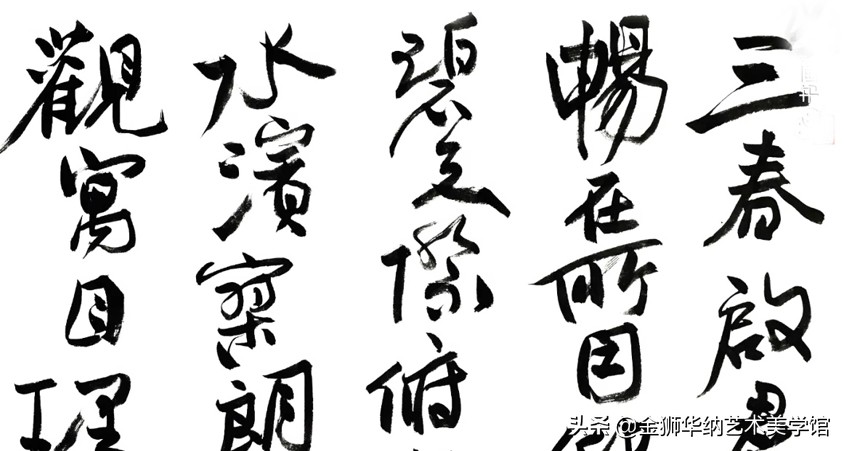 三春啟
暢在所因
碧天際俯
水濱寥朗
觀寓目理
头条 @金狮华纳艺术美学馆